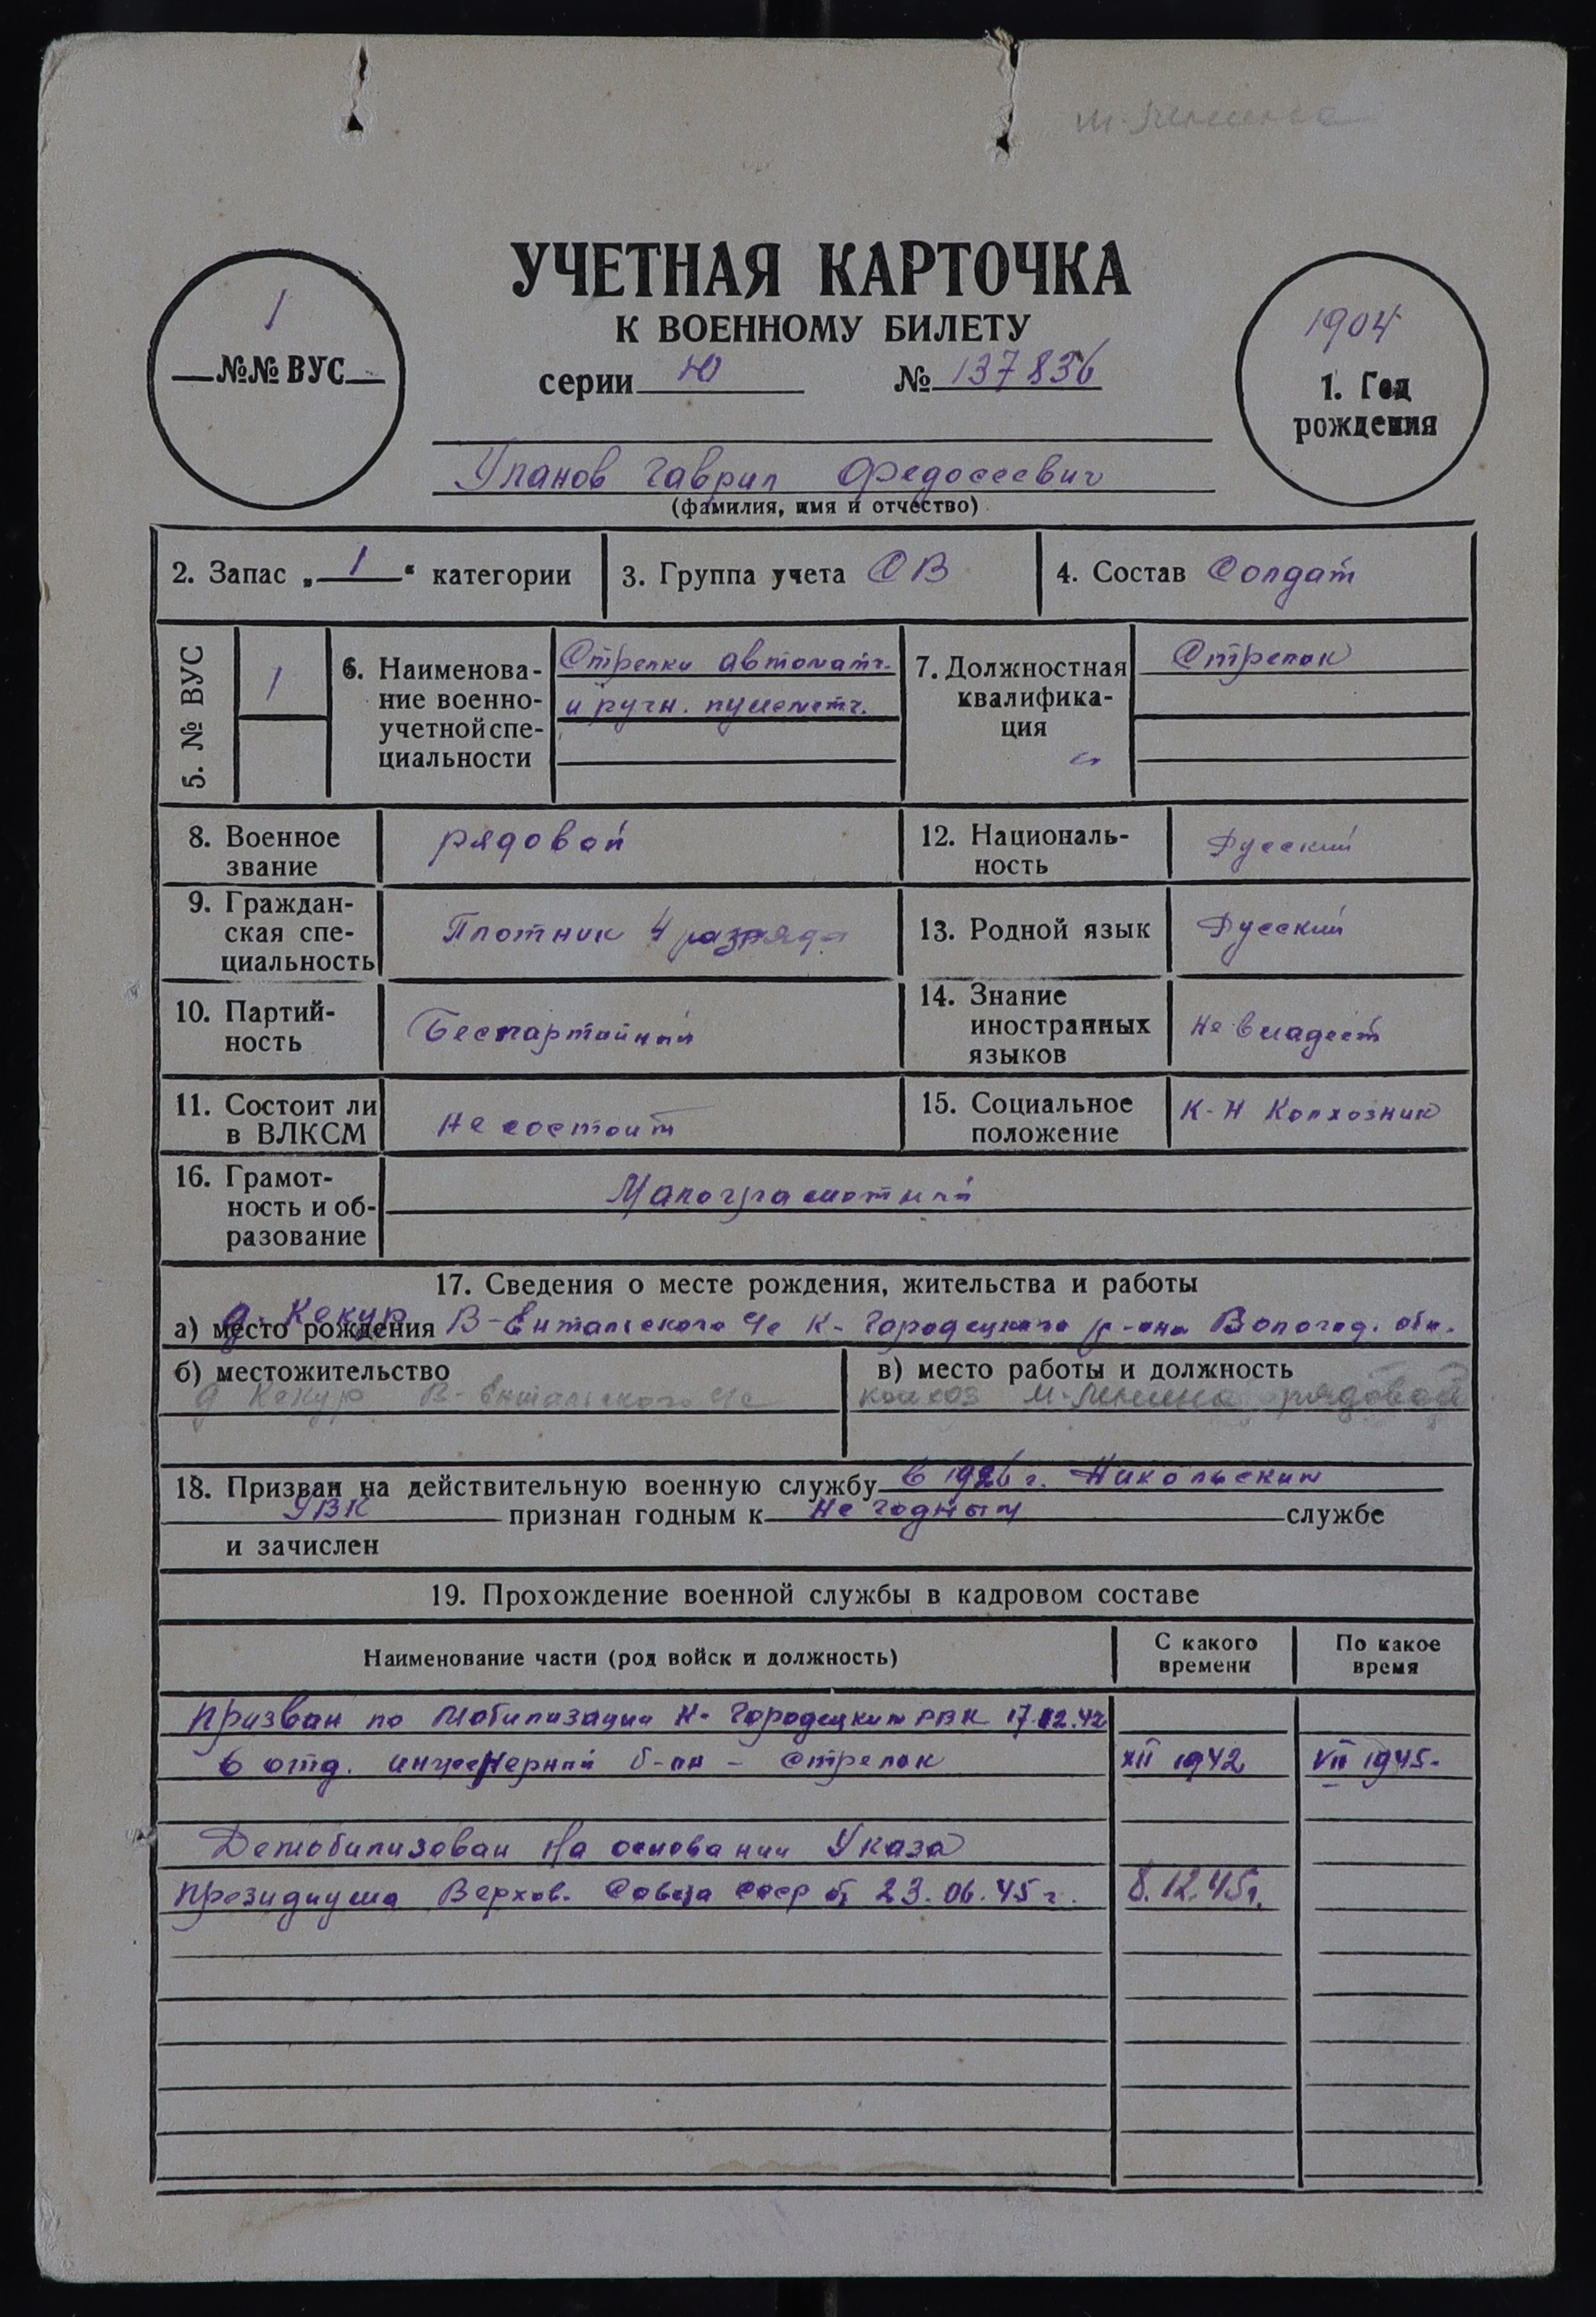 м-Ленина
УЧЕТНАЯ КАРТОЧКА
К ВОЕННОМУ БИЛЕТУ
серии Ю № 137836
1
№№ ВУС
1904
1. Год
рождения
Уланов Гаврил Федосеевич
(фамилия, имя и отчество)
2. Запас „ 1 “ категории
3. Группа учета СВ
4. Состав Солдат
5. № ВУС
1
6. Наименова-
ние военно-
учетной спе-
циальности
Стрелки автоматч.
и ручн. пулеметч.
7. Должностная
квалифика-
ция
Стрелок
8. Военное
звание
рядовой
12. Националь-
ность
Русский
9. Граждан-
ская спе-
циальность
Плотник 4 разряда
13. Родной язык
Русский
10. Партий-
ность
Беспартийный
14. Знание
иностранных
языков
не владеет
11. Состоит ли
в ВЛКСМ
не состоит
15. Социальное
положение
К-Н Колхозник
16. Грамот-
ность и об-
разование
Малограмотный
17. Сведения о месте рождения, жительства и работы
а) место рождения д. Кекур В-Ентальского с/с К-Городецкого р-она Вологод. обл.
б) местожительство
д Кекур В-Ентальского с/с
в) место работы и должность
колхоз м-Ленина рядовой
18. Призван на действительную военную службу в 1926 г. Никольским
УВК признан годным к не годным службе
и зачислен
19. Прохождение военной службы в кадровом составе
Наименование части (род войск и должность)
С какого
времени
По какое
время
Призван по мобилизации К-Городецким РВК 17.12.42
в отд. инженерный б-он - стрелок XII 1942 VII 1945-
Демобилизован На основании Указа
Президиума Верхов. Совета СССР от 23.06.45 г. 8.12.45г.